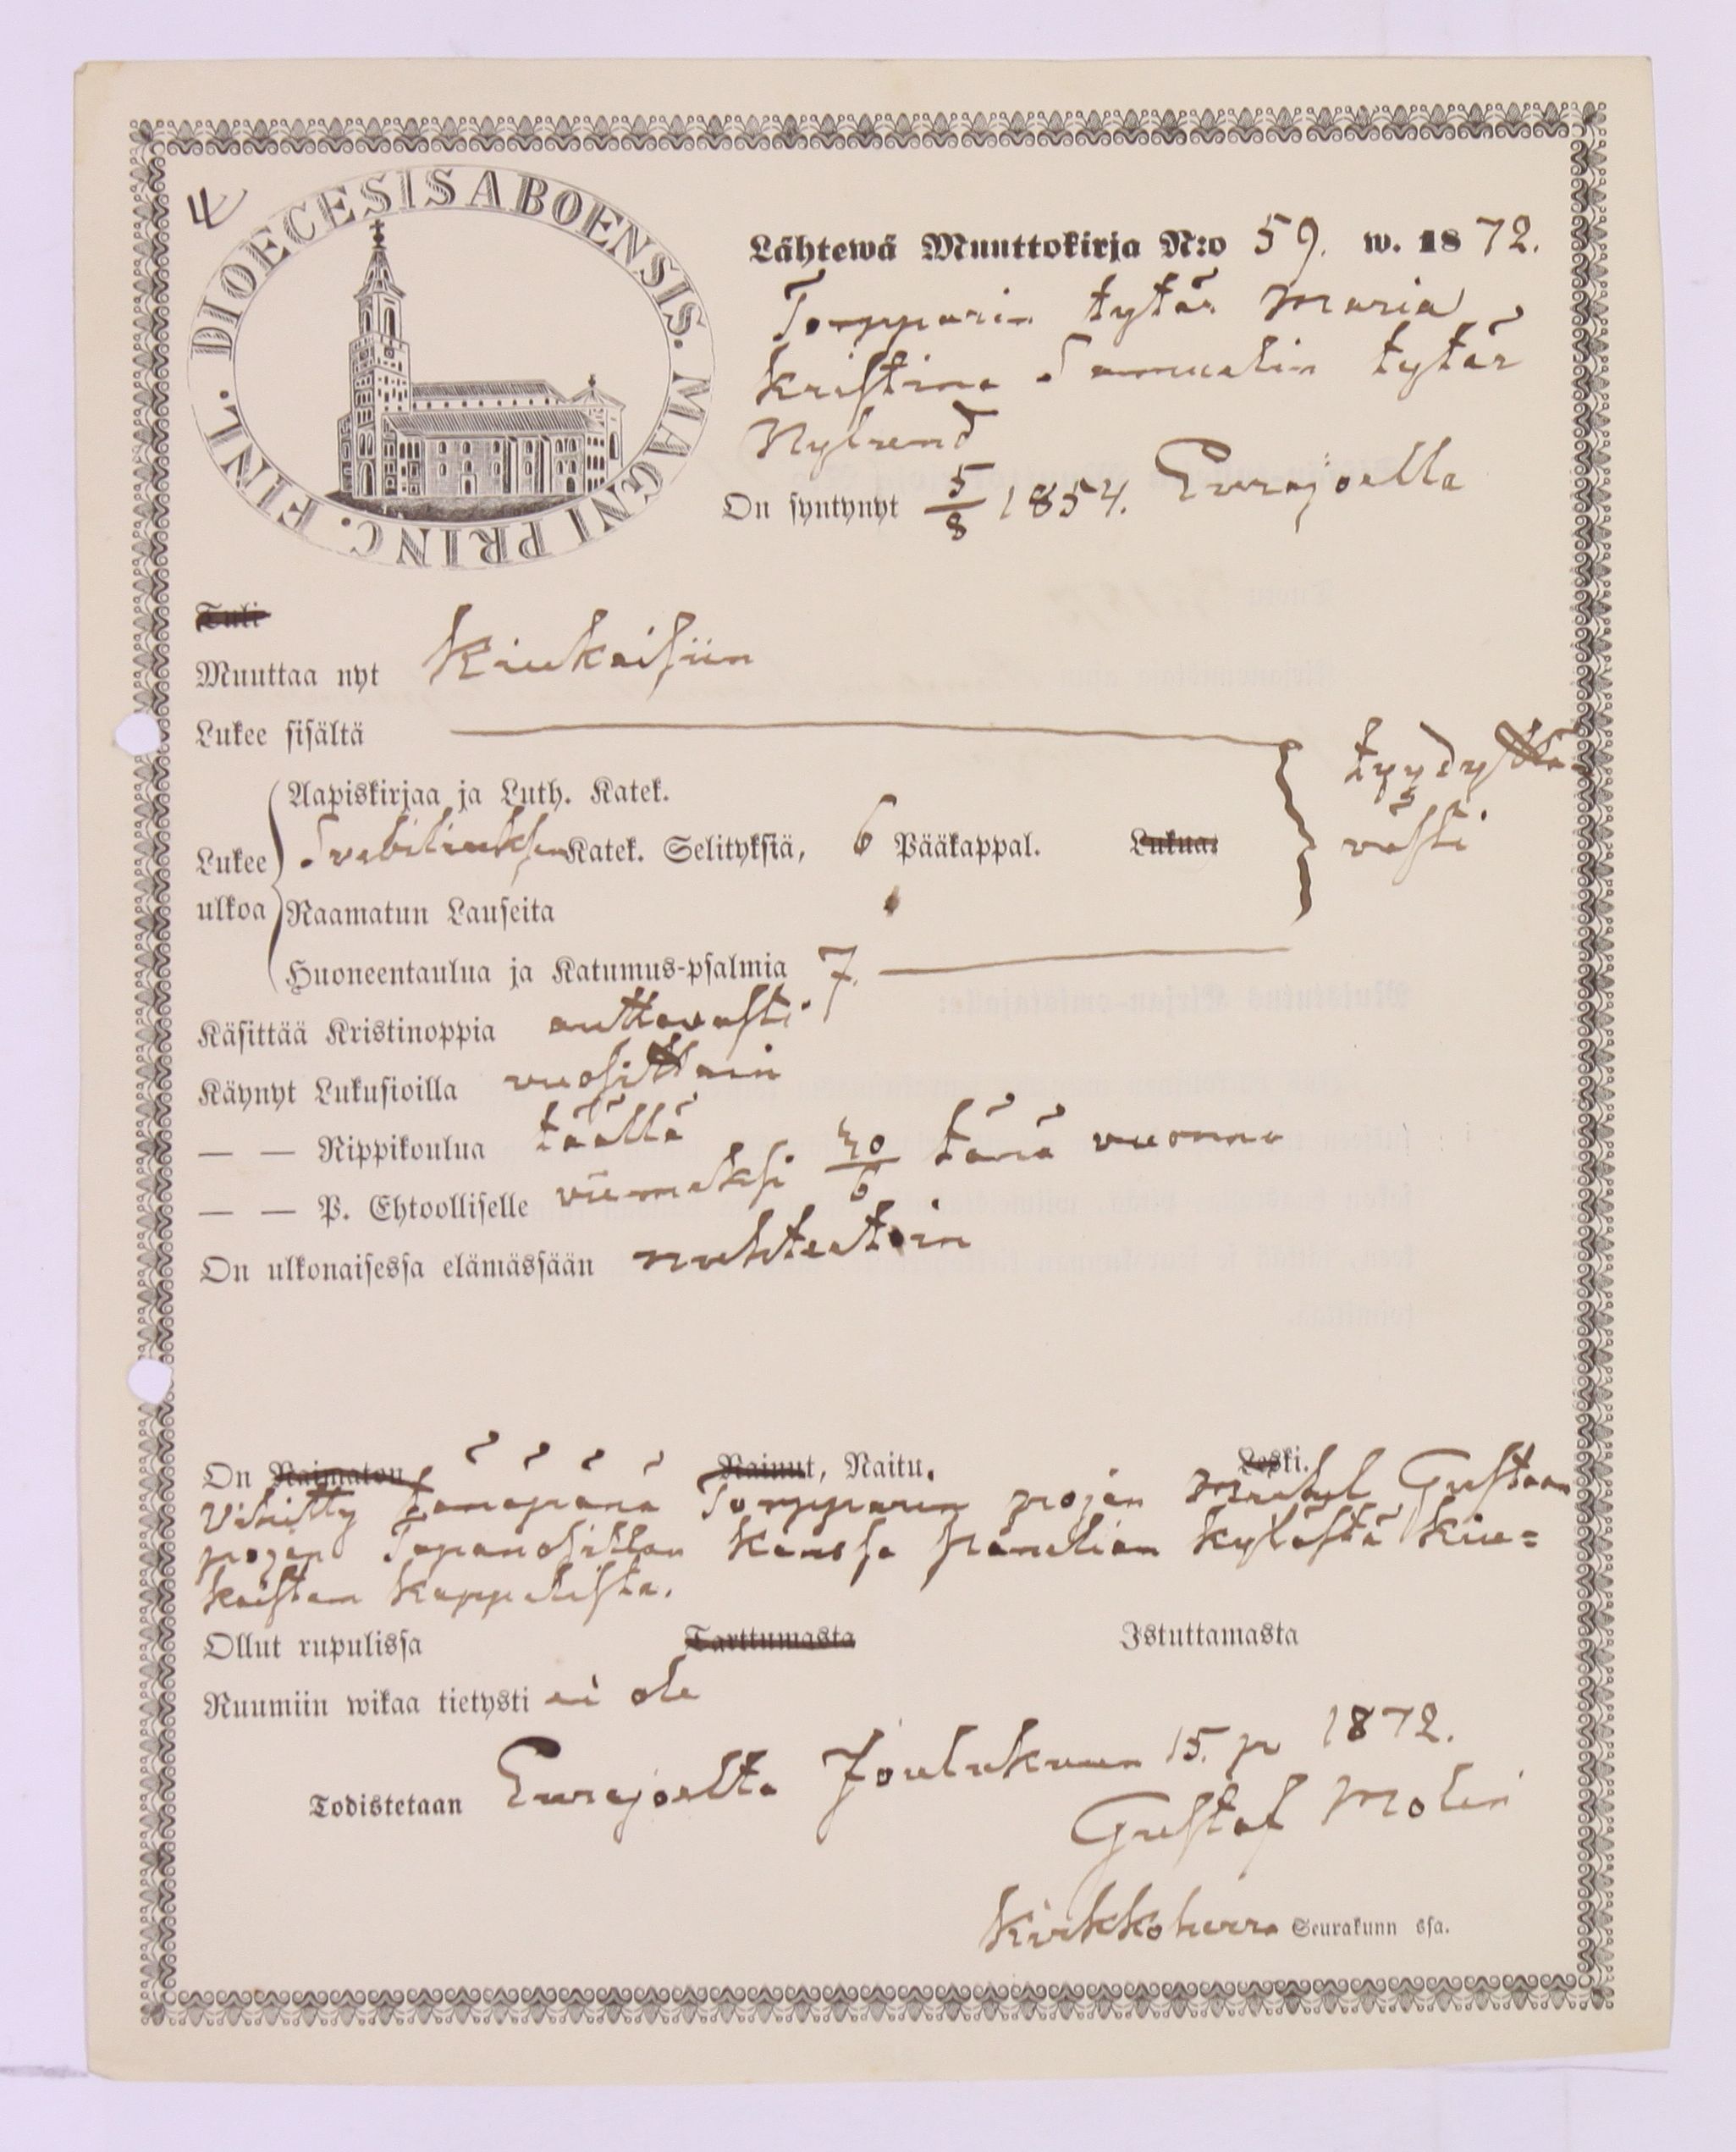 4
DIOECESIS ABOENSIS. MAGNI PRINC. FINL.
Lähtewä Muuttokirja N:o 59. w. 1872.
Torpparin tytär Maria
Kristina Samuelin tytär
Nylund
On syntynyt 5/8 1854. Eurajoella
Tuli
Muuttaa nyt Kiukaisiin
Lukee sisältä
Aapiskirjaa ja Luth. Katek.
tyydyttä-
Lukee Svebiliuksen Katek. Selityksiä, 6 Pääkappal. Lukua:
västi
ulkoa Raamatun Lauseita
Huoneentaulua ja Katumus-psalmia 7.
Käsittää Kristinoppia auttavasti
Käynyt Lukusioilla vuosittain
— — Rippikoulua täällä
— — P. Ehtoolliselle viimeksi 30/6 tänä vuonna
On ulkonaisessa elämässään nuhteetoin
On Naimaton Nainut, Naitu. Leski.
Vihitty tänäpänä Torpparin pojan Mikel Gustaan
pojan Tapanosittan kanssa Panelian kylästä Kiu=
kaisten kappelista.
Ollut rupulissa Tarttumasta Istuttamasta
Ruumiin wikaa tietysti ei ole
Todistetaan Eurajoelta Joulukuun 15. p 1872.
Gustaf Molin
Kirkkoherra Seurakunn ssa.